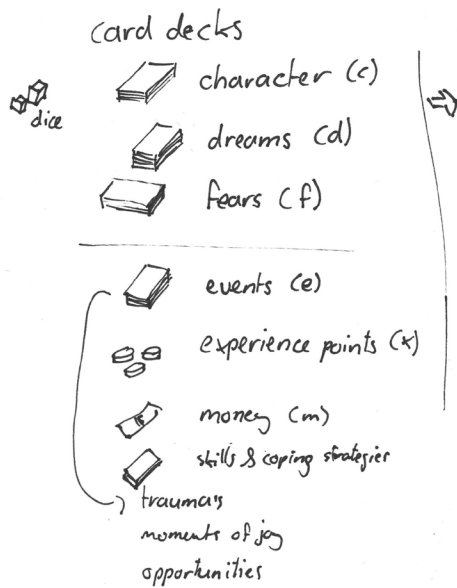 card decks
character (c)
dice
dreams (d)
fears (f)
events (e)
experience points (x)
money (m)
skills & coping strategies
trauma's
moments of joy
opportunities